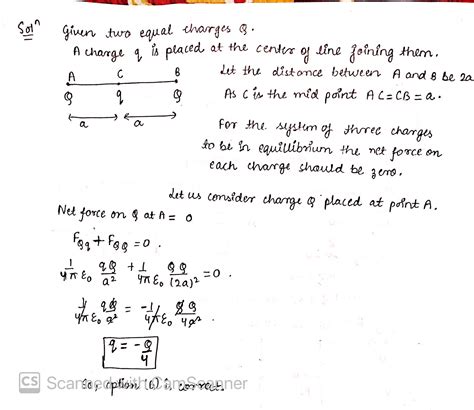 Solⁿ Given two equal charges Q.
A charge q is placed at the center of line joining them.
A C B Let the distance between A and B be 2a
Q q Q As C is the mid point AC = CB = a.
a a
For the system of three charges
to be in equillibrium the net force on
each charge should be zero.
Let us consider charge Q placed at point A.
Net force on Q at A = 0
F_Qq + F_QQ = 0.
1/4πε₀ qQ/a² + 1/4πε₀ QQ/(2a)² = 0.
1/4πε₀ qQ/a² = -1/4πε₀ QQ/4a².
q = -Q/4
So, option (b) is correct.
CS Scanned with CamScanner